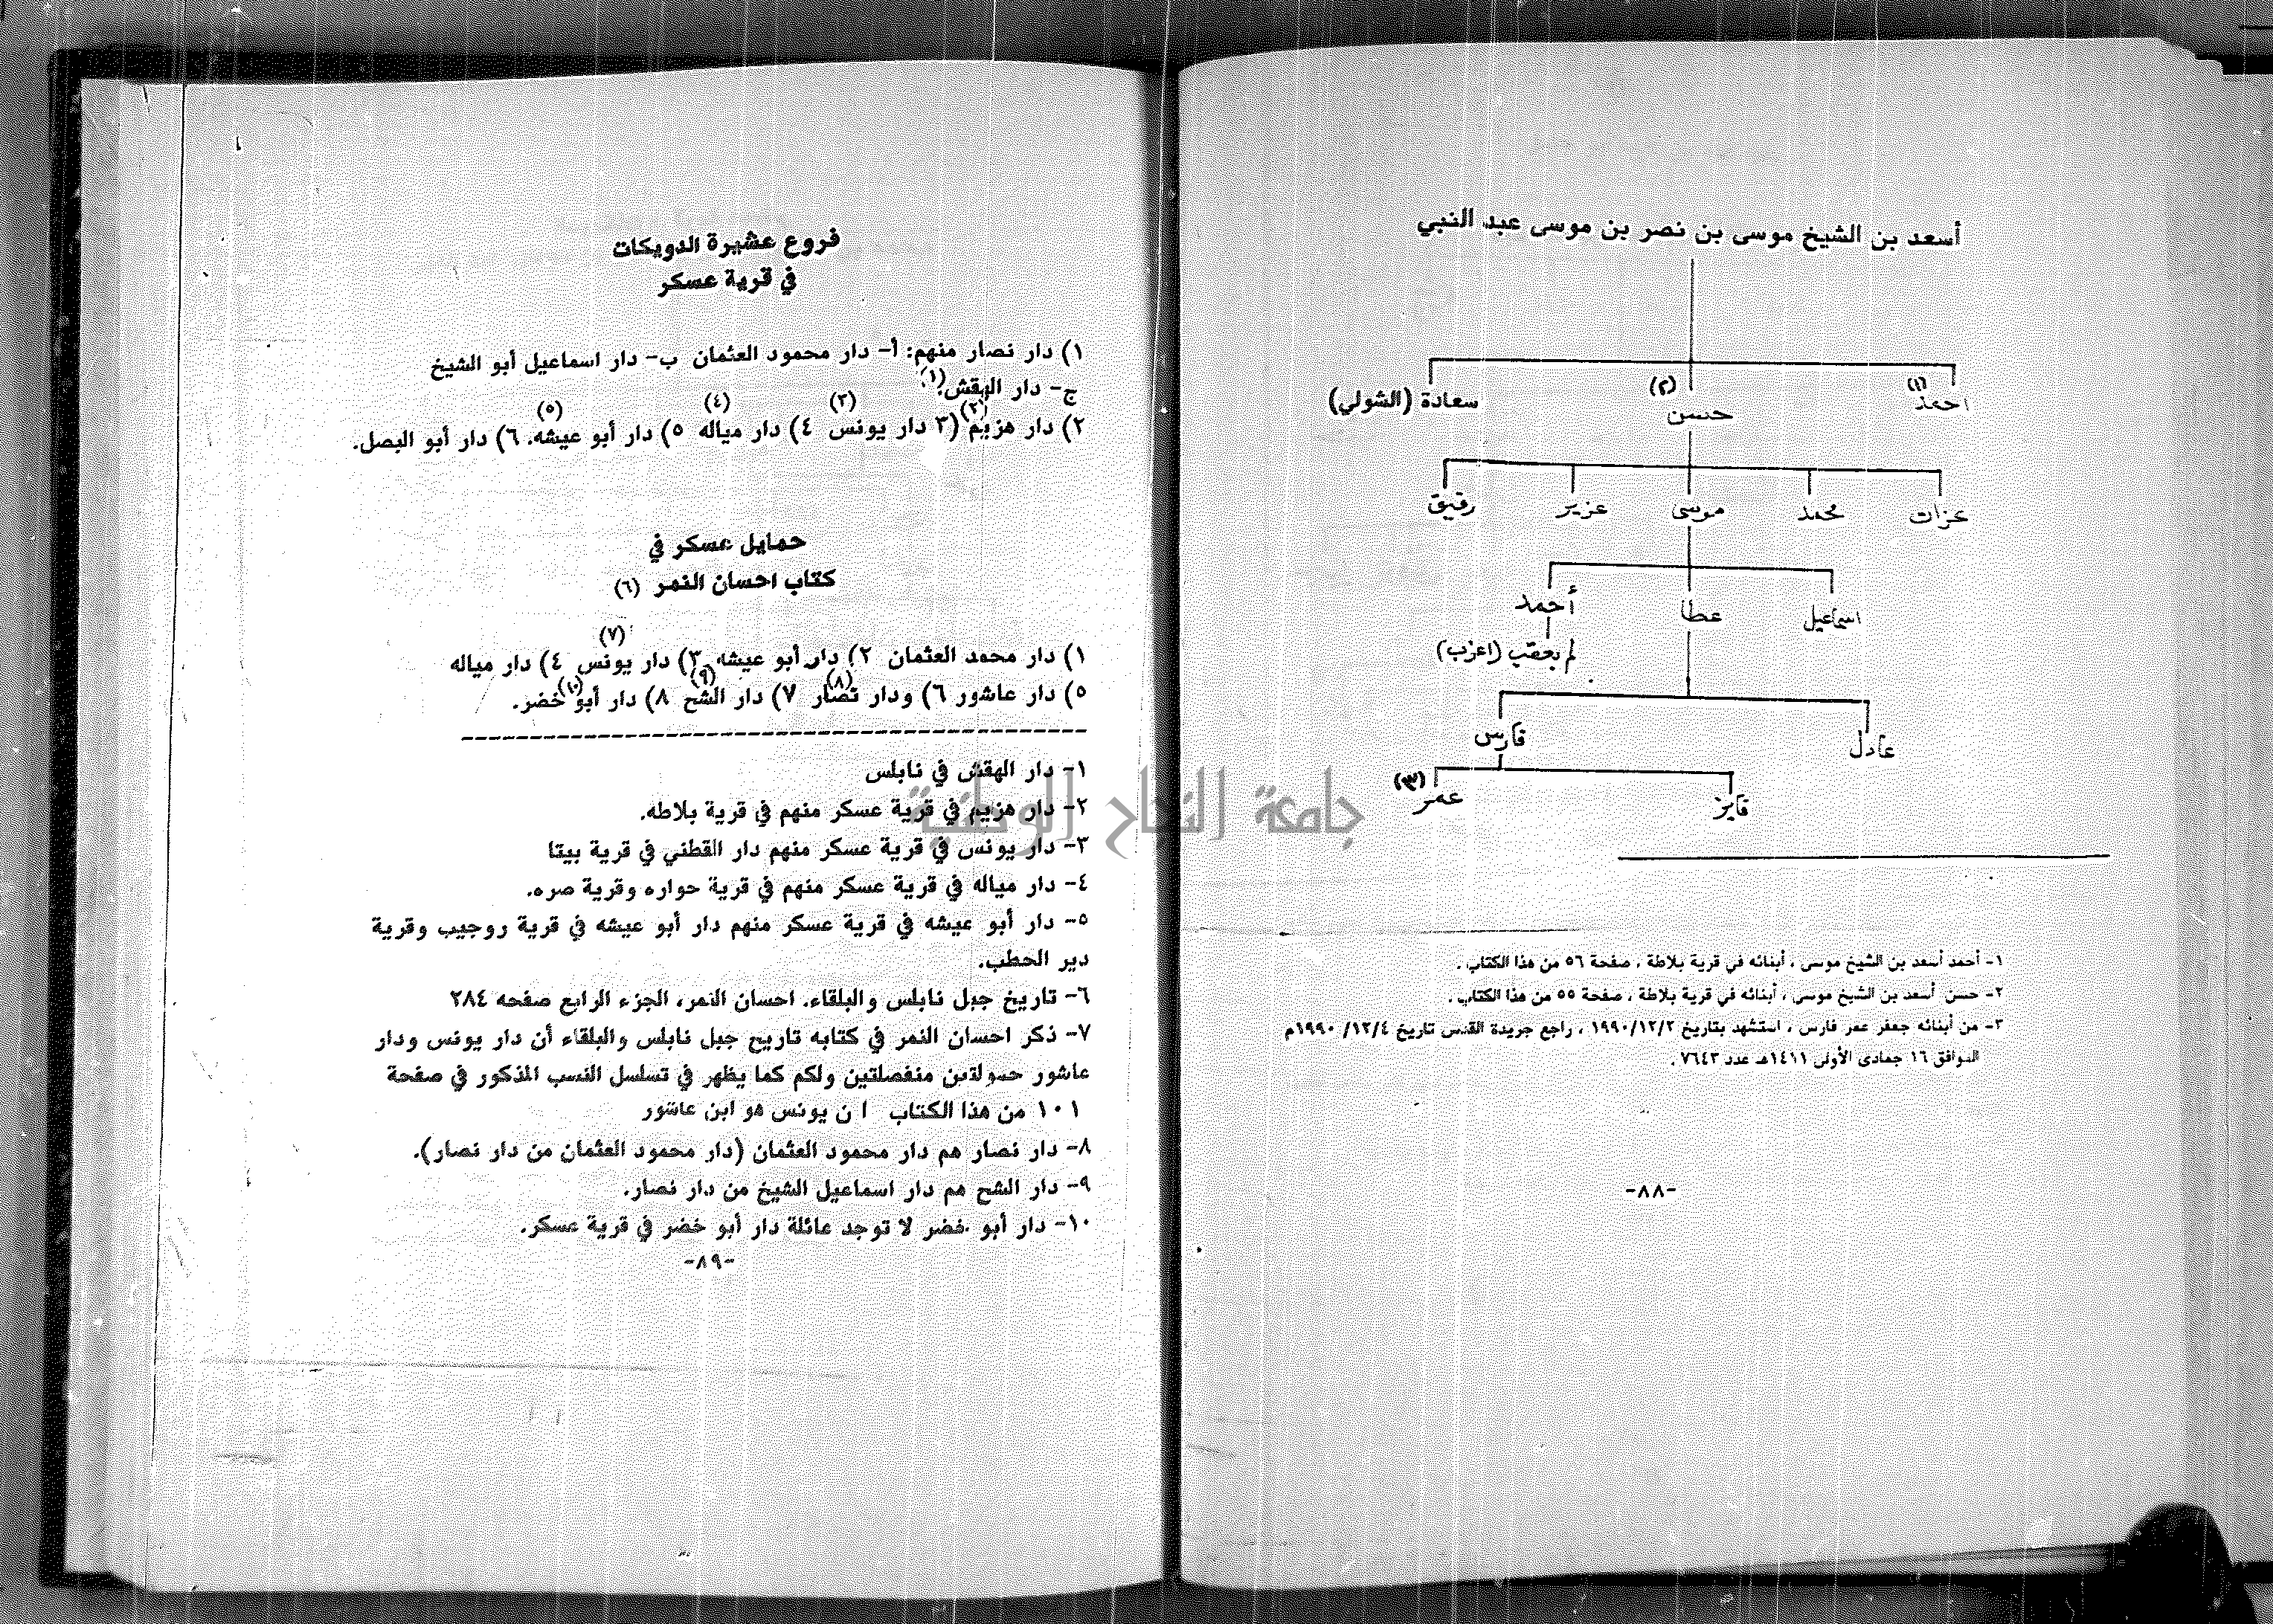 أسعد بن الشيخ موسى بن نصر بن موسى عبد النبي
احمد (١) حسن (٢) سعادة (الشولي)
عزات محمد موسى عزيز رفيق
اسماعيل عطا أحمد
لم يعقب (اعزب)
عادل فارس
فايز عمر (٣)
١- أحمد أسعد بن الشيخ موسى ، أبنائه في قرية بلاطة ، صفحة ٥٦ من هذا الكتاب .
٢- حسن أسعد بن الشيخ موسى ، أبنائه في قرية بلاطة ، صفحة ٥٥ من هذا الكتاب .
٣- من أبنائه جعفر عمر فارس ، استشهد بتاريخ ١٩٩٠/١٢/٢ ، راجع جريدة القدس تاريخ ١٢/٤/ ١٩٩٠م
الموافق ١٦ جمادى الأولى ١٤١١هـ عدد ٧٦٤٣ .
-٨٨-
فروع عشيرة الدويكات
في قرية عسكر
١) دار نصار منهم: أ- دار محمود العثمان ب- دار اسماعيل أبو الشيخ
ج- دار الهقش(١).
٢) دار هزيم(٢) (٣ دار يونس(٣) ٤) دار مياله(٤) ٥) دار أبو عيشه(٥). ٦) دار أبو البصل.
حمايل عسكر في
كتاب احسان النمر (٦)
١) دار محمد العثمان ٢) دار أبو عيشه ٣) دار يونس(٧) ٤) دار مياله
٥) دار عاشور ٦) ودار نصار(٨) ٧) دار الشح(٩) ٨) دار أبو خضر(١٠).
١- دار الهقش في نابلس
٢- دار هزيم في قرية عسكر منهم في قرية بلاطه.
٣- دار يونس في قرية عسكر منهم دار القطني في قرية بيتا
٤- دار مياله في قرية عسكر منهم في قرية حواره وقرية صره.
٥- دار أبو عيشه في قرية عسكر منهم دار أبو عيشه في قرية روجيب وقرية
دير الحطب.
٦- تاريخ جبل نابلس والبلقاء. احسان النمر، الجزء الرابع صفحه ٢٨٤
٧- ذكر احسان النمر في كتابه تاريخ جبل نابلس والبلقاء أن دار يونس ودار
عاشور حمولتين منفصلتين ولكم كما يظهر في تسلسل النسب المذكور في صفحة
١٠١ من هذا الكتاب ا ن يونس هو ابن عاشور
٨- دار نصار هم دار محمود العثمان (دار محمود العثمان من دار نصار).
٩- دار الشح هم دار اسماعيل الشيخ من دار نصار.
١٠- دار أبو خضر لا توجد عائلة دار أبو خضر في قرية عسكر.
-٨٩-
جامعة النجاح الوطنية